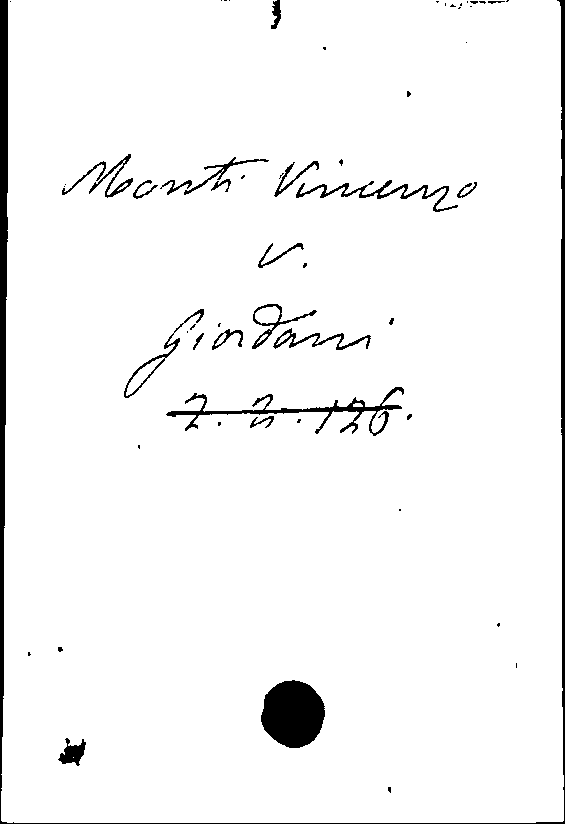 Monti Vincenzo
v.
Giordani
2. 2. 126.